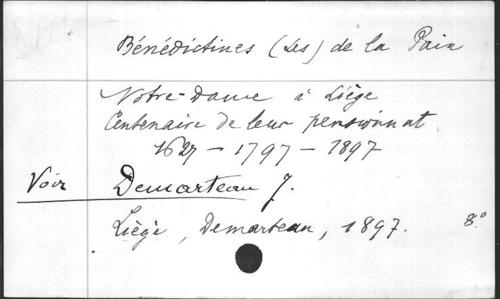 Bénédictines (Les) de la Paix
Notre-Dame à Liège
Centenaire de leur pensionnat
1627 - 1797 - 1897
Voir Demarteau J.
Liège, Demarteau, 1897. 8°